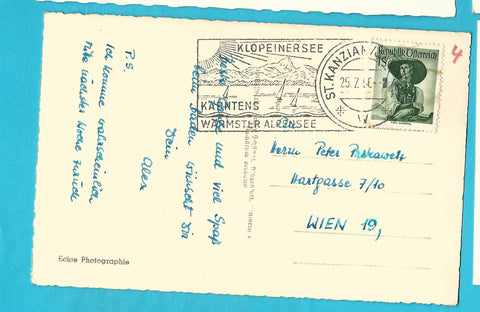 KLOPEINERSEE
KÄRNTENS
WÄRMSTER ALPENSEE
ST. KANZIAN
25.7.60
Republik Österreich
1S
4
und viel Spaß
beim Baden wünscht Dir
Dein
Alex
P.S.
Ich komme wahrscheinlich
Mitte nächster Woche zurück
An
Herrn Peter
Hartgasse 7/10
WIEN 19,
Echte Photographie